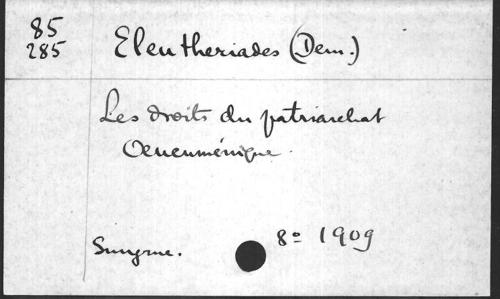 85
285
Eleutheriades (Dem.)
Les droits du patriarchat
Oecuménique.
Smyrne.
8º 1909